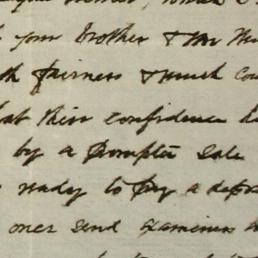 your brother & Mr
fairness & much
that their confidence
by a prompter sale
ready to pay a
once send examiners